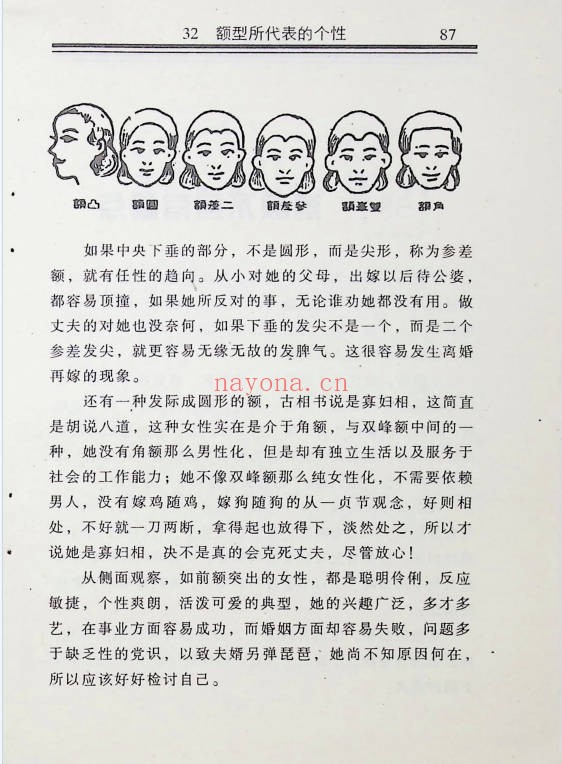 32 额型所代表的个性 87
額凸 額圓 額差二 額差參 額峯雙 額角
如果中央下垂的部分，不是圆形，而是尖形，称为参差
额，就有任性的趋向。从小对她的父母，出嫁以后待公婆，
都容易顶撞，如果她所反对的事，无论谁劝她都没有用。做
丈夫的对她也没奈何，如果下垂的发尖不是一个，而是二个
参差发尖，就更容易无缘无故的发脾气。这很容易发生离婚
再嫁的现象。
nayona.cn
还有一种发际成圆形的额，古相书说是寡妇相，这简直
是胡说八道，这种女性实在是介于角额，与双峰额中间的一
种，她没有角额那么男性化，但是却有独立生活以及服务于
社会的工作能力；她不像双峰额那么纯女性化，不需要依赖
男人，没有嫁鸡随鸡，嫁狗随狗的从一贞节观念，好则相
处，不好就一刀两断，拿得起也放得下，淡然处之，所以才
说她是寡妇相，决不是真的会克死丈夫，尽管放心！
从侧面观察，如前额突出的女性，都是聪明伶俐，反应
敏捷，个性爽朗，活泼可爱的典型，她的兴趣广泛，多才多
艺，在事业方面容易成功，而婚姻方面却容易失败，问题多
于缺乏性的党识，以致夫婿另弹琵琶，她尚不知原因何在，
所以应该好好检讨自己。